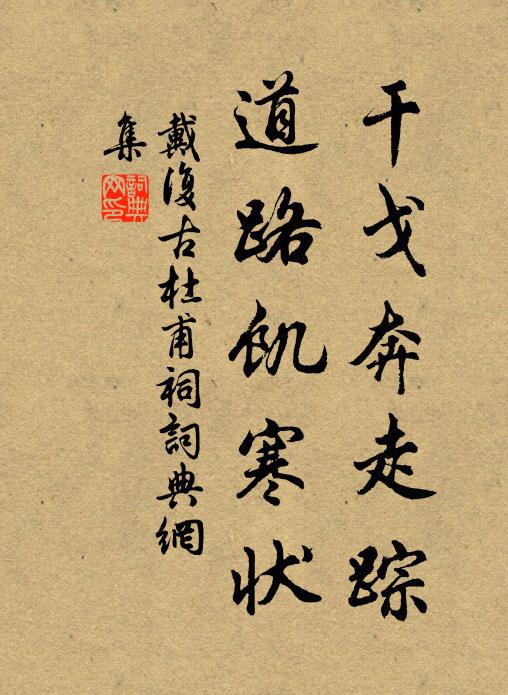 干戈奔走踪
道路飢寒状
戴復古杜甫祠詞典網
集
詞典網印